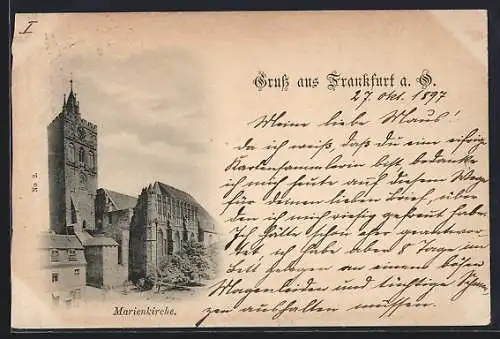 I
Gruß aus Frankfurt a. O.
27. Okt. 1897
Meine liebe Maus!
Da ich weiß, daß du eine eifrige
Kartensammlerin bist bedanke
ich mich heute auf diesem Wege
für deinen lieben Brief, über
den ich mich riesig gefreut habe.
Ich hätte schon eher geantwor-
tet, ich habe aber 8 Tage im
Bett gelegen an einem bösen
Magenleiden und tüchtige Schmer-
zen aushalten müssen.
No 2.
Marienkirche.